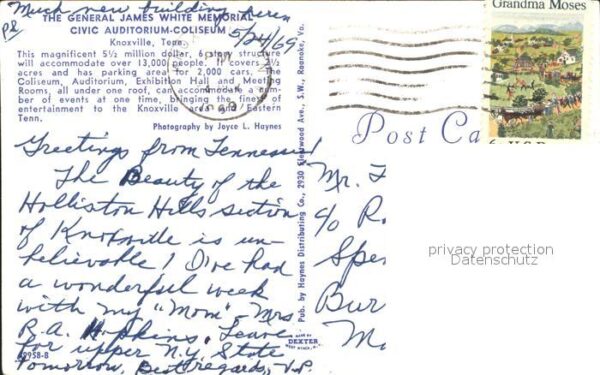 Much new building here.
P.S.
5/24/69
THE GENERAL JAMES WHITE MEMORIAL
CIVIC AUDITORIUM-COLISEUM
Knoxville, Tenn.
This magnificent 5½ million dollar, 6 story structure
will accommodate over 13,000 people. It covers 2½
acres and has parking area for 2,000 cars. The
Coliseum, Auditorium, Exhibition Hall and Meeting
Rooms, all under one roof, can accommodate a
number of events at one time, bringing the finest of
entertainment to the Knoxville area and Eastern
Tenn.
Photography by Joyce L. Haynes
Greetings from Tennessee!
The Beauty of the
Holliston Hills section
of Knoxville is un-
believable! I've had
a wonderful week
with my "Mom" - Mrs
R.A. Hopkins. Leave
for upper N.Y. State
tomorrow. Best regards, - V.P.
58-B
Pub. by Haynes Distributing Co., 2930 Edgewood Ave., S.W., Roanoke, Va.
DEXTER
Post Ca
Grandma Moses
6c U.S.
PM
Mr. F
c/o R.
Spe
Bur
Ma
privacy protection
Datenschutz